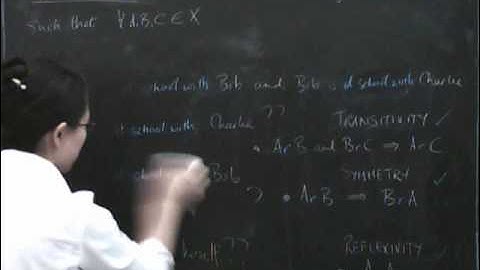 Such that ∀ A, B, C ∈ X
school with Bob and Bob is at school with Charlie
at school with Charlie ??
TRANSITIVITY ✓
• A r B and B r C ⟹ A r C
Bob
SYMMETRY ✓
? • A r B ⟹ B r A
herself ??
REFLEXIVITY ✓
A r A